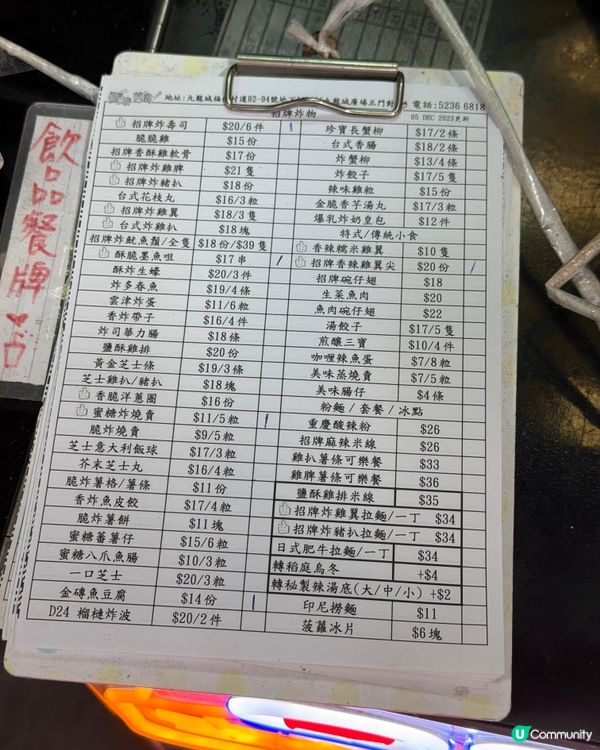 地址:九龍城福
道92-94號地下
九龍城廣場正門對
電話:5236 6818
05 DEC 2023更新
飲品餐牌
招牌炸物
招牌炸壽司 $20/6件
脆脆雞 $15份
招牌香酥雞軟骨 $17份
招牌炸雞髀 $21隻
招牌炸豬扒 $18份
台式花枝丸 $16/3粒
招牌炸雞翼 $18/3隻
台式炸雞扒 $18塊
招牌炸魷魚鬚/全隻 $18份/$39隻
酥脆墨魚咀 $17串
酥炸生蠔 $20/3件
炸多春魚 $19/4條
雲津炸蛋 $11/6粒
香炸帶子 $16/4件
炸司華力腸 $18條
鹽酥雞排 $20份
黃金芝士條 $19/3條
芝士雞扒/豬扒 $18塊
香脆洋蔥圈 $16份
蜜糖炸燒賣 $11/5粒
脆炸燒賣 $9/5粒
芝士意大利飯球 $17/3粒
芥末芝士丸 $16/4粒
脆炸薯格/薯條 $11份
香炸魚皮餃 $17/4粒
脆炸薯餅 $11塊
蜜糖蕃薯仔 $15/6粒
蜜糖八爪魚腸 $10/3粒
一口芝士 $20/3粒
金磚魚豆腐 $14份
D24 榴槤炸波 $20/2件
珍寶長蟹柳 $17/2條
台式香腸 $18/2條
炸蟹柳 $13/4條
炸餃子 $17/5隻
辣味雞粒 $15份
金脆香芋湯丸 $17/3粒
爆乳炸奶皇包 $12件
特式/傳統小食
香辣糯米雞翼 $10隻
招牌香辣雞翼尖 $20份
招牌碗仔翅 $18
生菜魚肉 $20
魚肉碗仔翅 $22
湯餃子 $17/5隻
煎釀三寶 $10/4件
咖喱辣魚蛋 $7/8粒
美味蒸燒賣 $7/5粒
美味腸仔 $4條
粉麵/套餐/冰點
重慶酸辣粉 $26
招牌麻辣米線 $26
雞扒薯條可樂餐 $33
雞髀薯條可樂餐 $36
鹽酥雞排米線 $35
招牌炸雞翼拉麵/一丁 $34
招牌炸豬扒拉麵/一丁 $34
日式肥牛拉麵/一丁 $34
轉稻庭烏冬 +$4
轉秘製辣湯底(大/中/小) +$2
印尼撈麵 $11
菠蘿冰片 $6塊
U Community